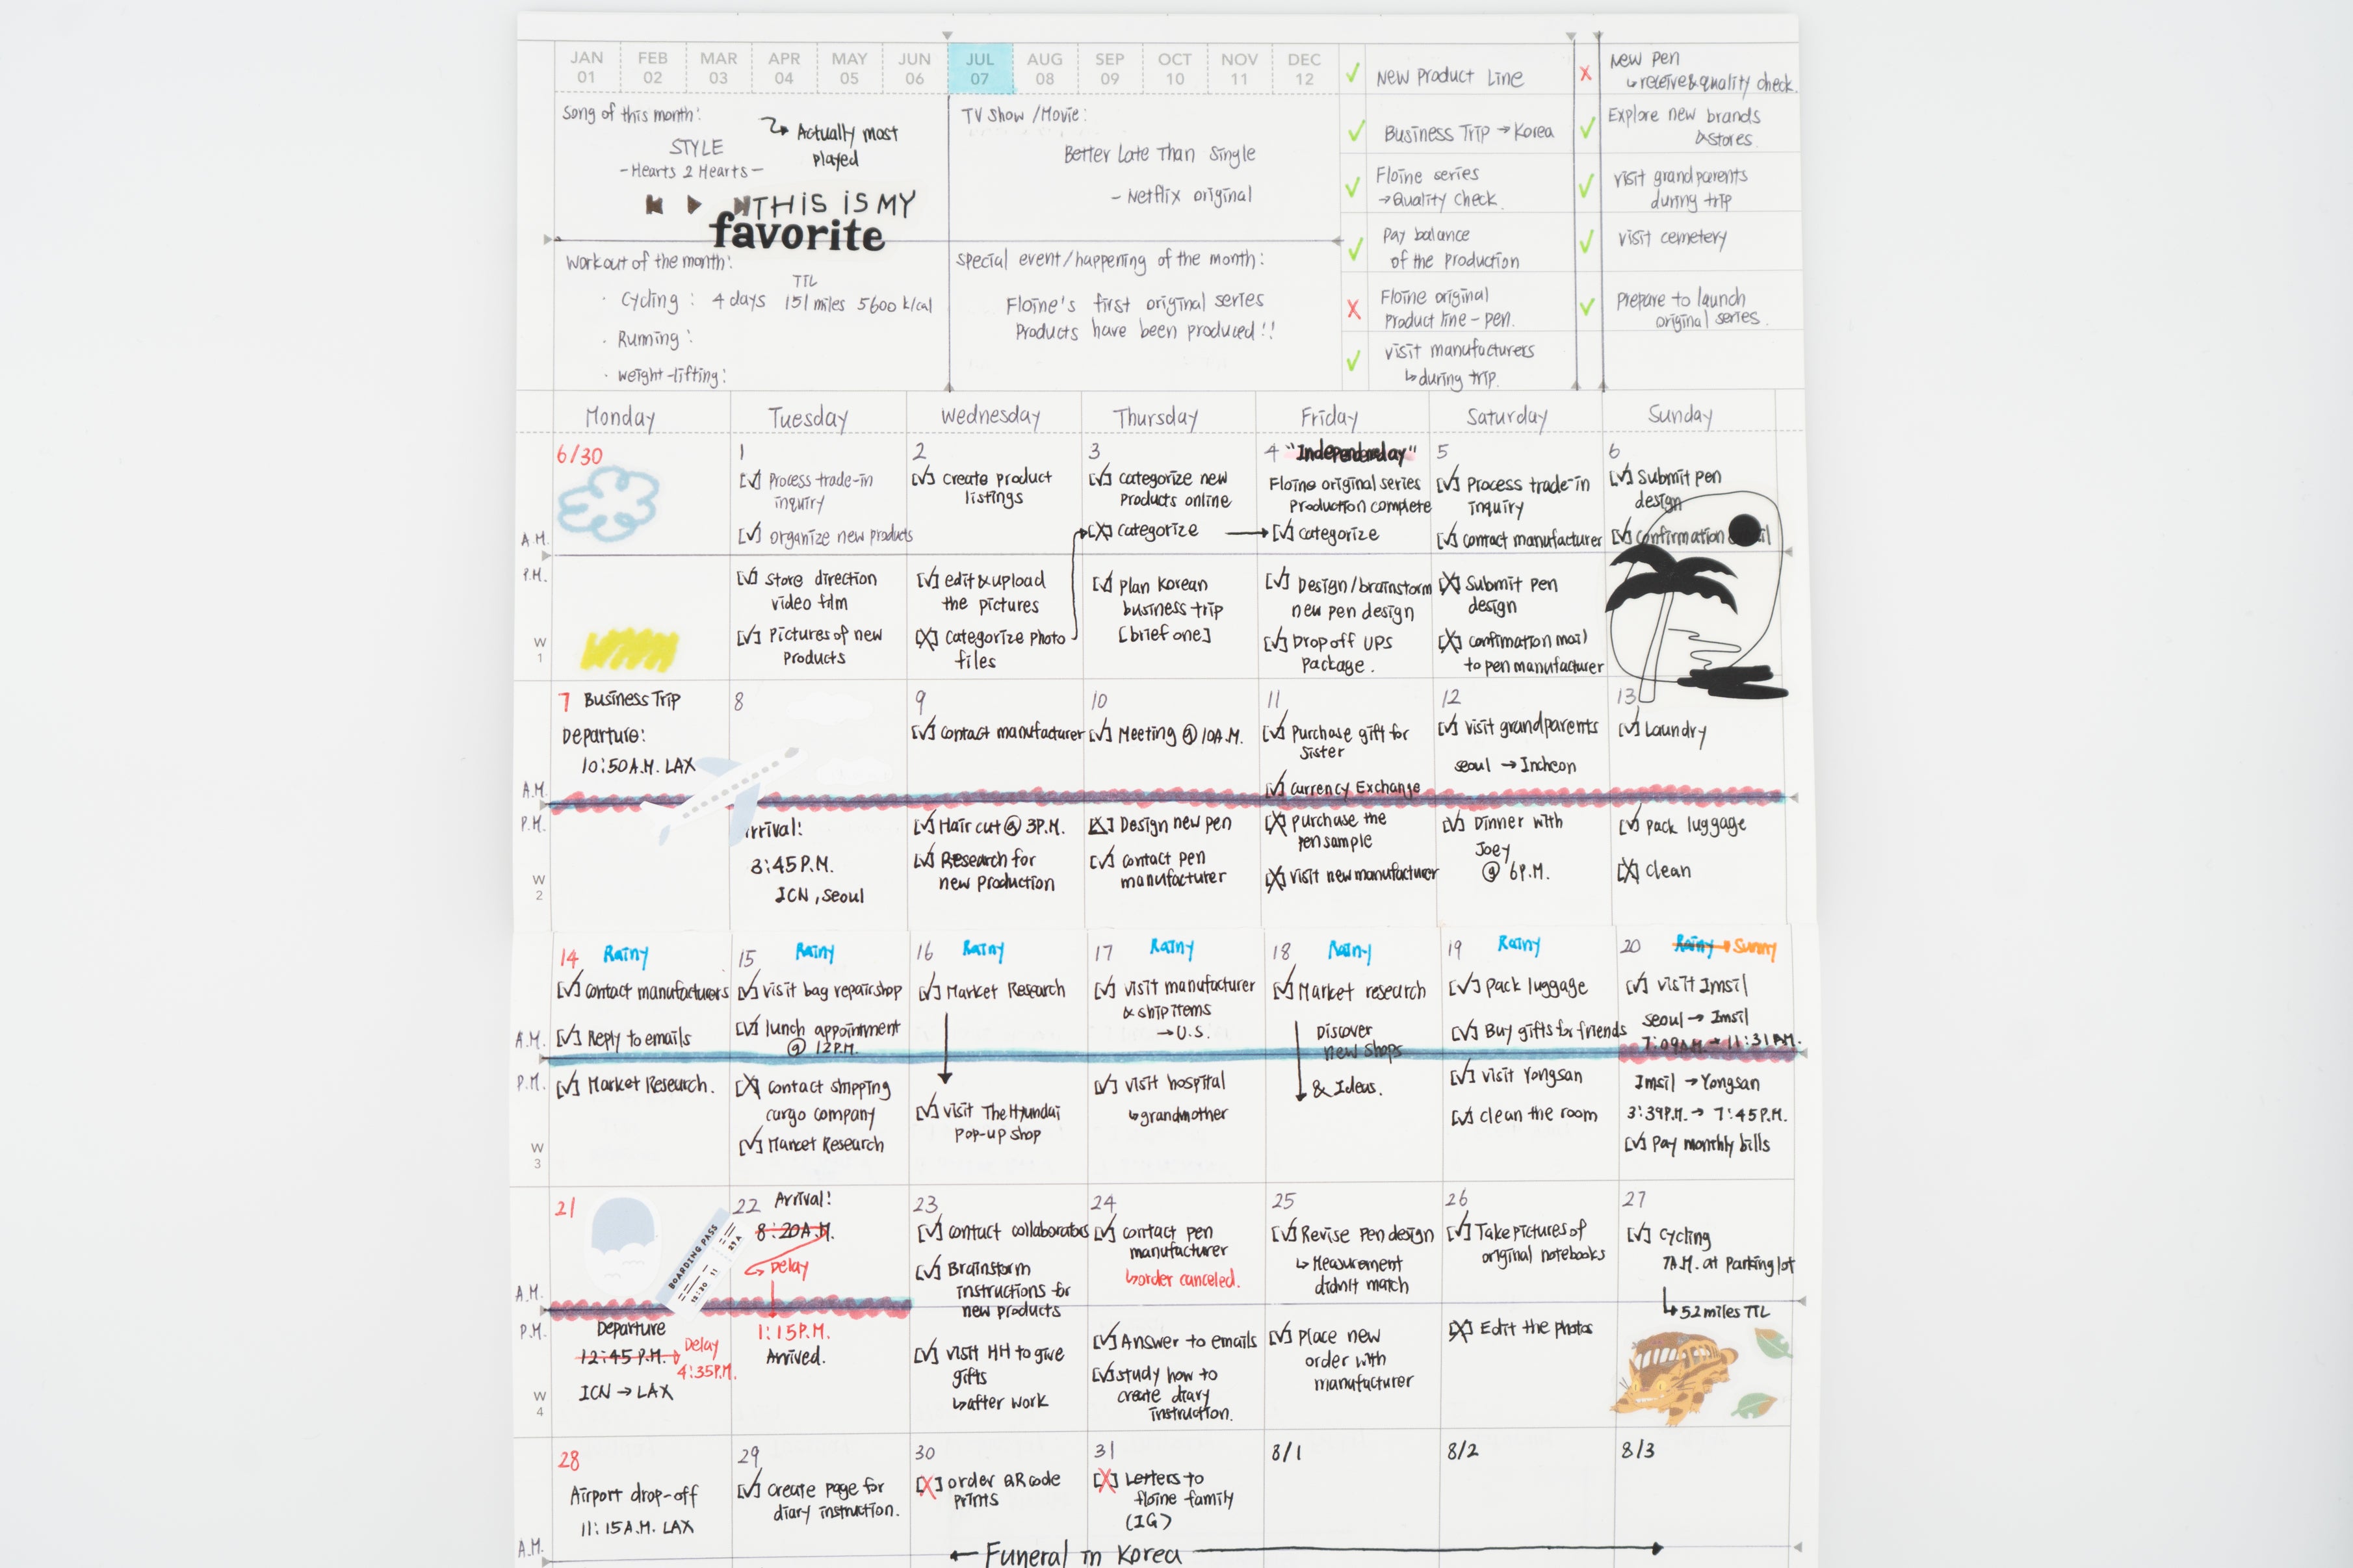 JAN 01 FEB 02 MAR 03 APR 04 MAY 05 JUN 06 JUL 07 AUG 08 SEP 09 OCT 10 NOV 11 DEC 12
Song of this month:
STYLE
-Hearts 2 Hearts-
Actually most
played
THIS IS MY
favorite
TV Show/Movie:
Better Late Than Single
- Netflix original
Workout of the month:
TTL
· Cycling : 4 days 151 miles 5600 k/cal
· Running :
· weight-lifting:
special event/happening of the month:
Floine's first original series
Products have been produced!!
✓ New Product Line
✓ Business Trip → Korea
✓ Floine series
→ Quality check.
✓ Pay balance
of the production
X Floine original
Product line - pen.
✓ visit manufacturers
↳ during trip.
X New pen
↳ receive & quality check.
✓ Explore new brands
& stores.
✓ visit grandparents
during trip
✓ visit cemetery
✓ Prepare to launch
original series.
Monday Tuesday Wednesday Thursday Friday Saturday Sunday
A.M.
P.M.
W
1
6/30
1
[✓] Process trade-in
inquiry
[✓] organize new products
[✓] Store direction
video film
[✓] Pictures of new
Products
2
[✓] create product
listings
[✓] edit & upload
the pictures
[X] Categorize photo
files
3
[✓] categorize new
Products online
[X] categorize →
[✓] plan Korean
business trip
[brief one]
4 "Independenday"
Floine original series
Production complete
[✓] categorize
[✓] Design/brainstorm
new pen design
[✓] Drop off UPS
package.
5
[✓] Process trade-in
inquiry
[✓] contact manufacturer
[X] Submit pen
design
[X] confimation mail
to pen manufacturer
6
[✓] Submit pen
design
[✓] Confirmation
A.M.
P.M.
W
2
7 Business Trip
Departure:
10:50 A.M. LAX
8
Arrival:
3:45 P.M.
ICN, Seoul
9
[✓] Contact manufacturer
[✓] Hair cut @ 3P.M.
[✓] Research for
new Production
10
[✓] Meeting @ 10A.M.
[X] Design new pen
[✓] contact pen
manufacturer
11
[✓] Purchase gift for
sister
[✓] Currency Exchange
[X] purchase the
pen sample
[X] visit new manufacturer
12
[✓] visit grandparents
seoul → Incheon
[✓] Dinner with
Joey
@ 6P.M.
13
[✓] Laundry
[✓] Pack luggage
[X] clean
A.M.
P.M.
W
3
14 Rainy
[✓] contact manufacturers
[✓] Reply to emails
[✓] Market Research.
15 Rainy
[✓] visit bag repair shop
[✓] lunch appointment
@ 12P.M.
[X] contact shipping
cargo company
[✓] Market Research
16 Rainy
[✓] Market Research
[✓] visit The Hyundai
Pop-up shop
17 Rainy
[✓] visit manufacturer
& ship items
→ U.S.
[✓] visit hospital
↳ grandmother
18 Rainy
[✓] Market research
Discover
new shops
& Ideas.
19 Rainy
[✓] pack luggage
[✓] Buy gifts for friends
[✓] visit Yongsan
[✓] clean the room
20 Rainy → Sunny
[✓] visit Imsil
seoul → Imsil
7:09A.M. → 11:31A.M.
Imsil → Yongsan
3:39P.M. → 7:45P.M.
[✓] Pay monthly bills
A.M.
P.M.
W
4
21
BOARDING PASS
Departure
12:45 P.M. → Delay
4:35P.M.
ICN → LAX
22 Arrival!
8:20A.M.
Delay
1:15P.M.
Arrived.
23
[✓] contact collaborators
[✓] Brainstorm
instructions for
new products
[✓] visit HH to give
gifts
↳ after work
24
[✓] contact pen
manufacturer
↳ order canceled.
[✓] Answer to emails
[✓] study how to
create diary
instruction.
25
[✓] Revise Pen design
↳ Measurement
didn't match
[✓] Place new
order with
manufacturer
26
[✓] Take pictures of
original notebooks
[X] Edit the photos
27
[✓] Cycling
7A.M. at Parking lot
↳ 52 miles TTL
A.M.
28
Airport drop-off
11:15A.M. LAX
29
[✓] create page for
diary instruction.
30
[X] order QR code
prints
31
[X] Letters to
floine family
(IG)
8/1
8/2
8/3
← Funeral in Korea →